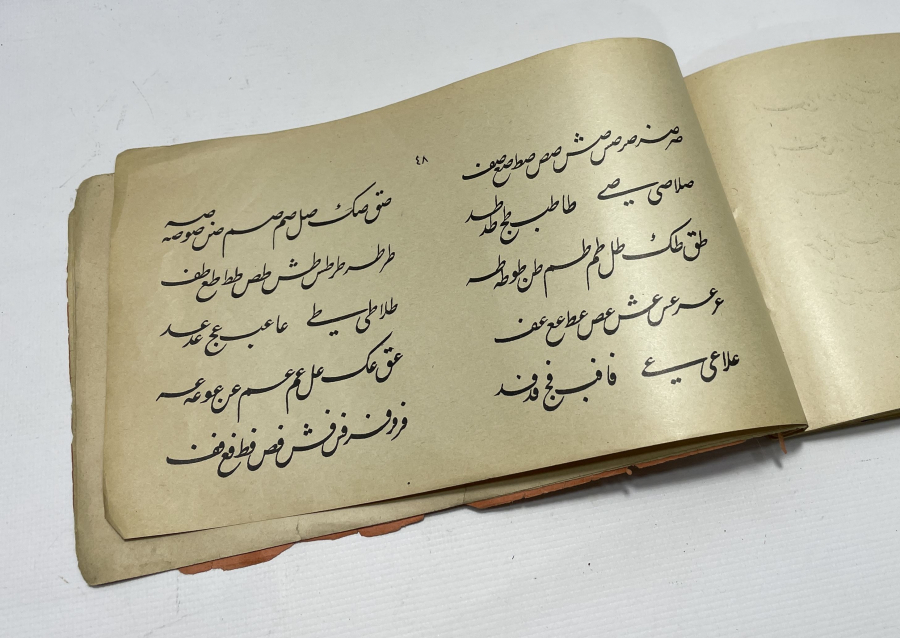 ٤٨
صر صز صر صس صش صص صط صع صف
صلا صی صے طا طب طج طد طد
طق طک طل طم طم طن طو طه طه
ع عر عس عش عص عط عع عف
علا عی عے فا فب فج فد فد
صق صک صل صم صم صن صو صه صه
طر طر طر طس طش طص طط طع طف
طلا طی طے عا عب عج عد عد
عق عک عل عم عم عن عو عه عه
فر فر فز فر فس فش فص فط فع فف